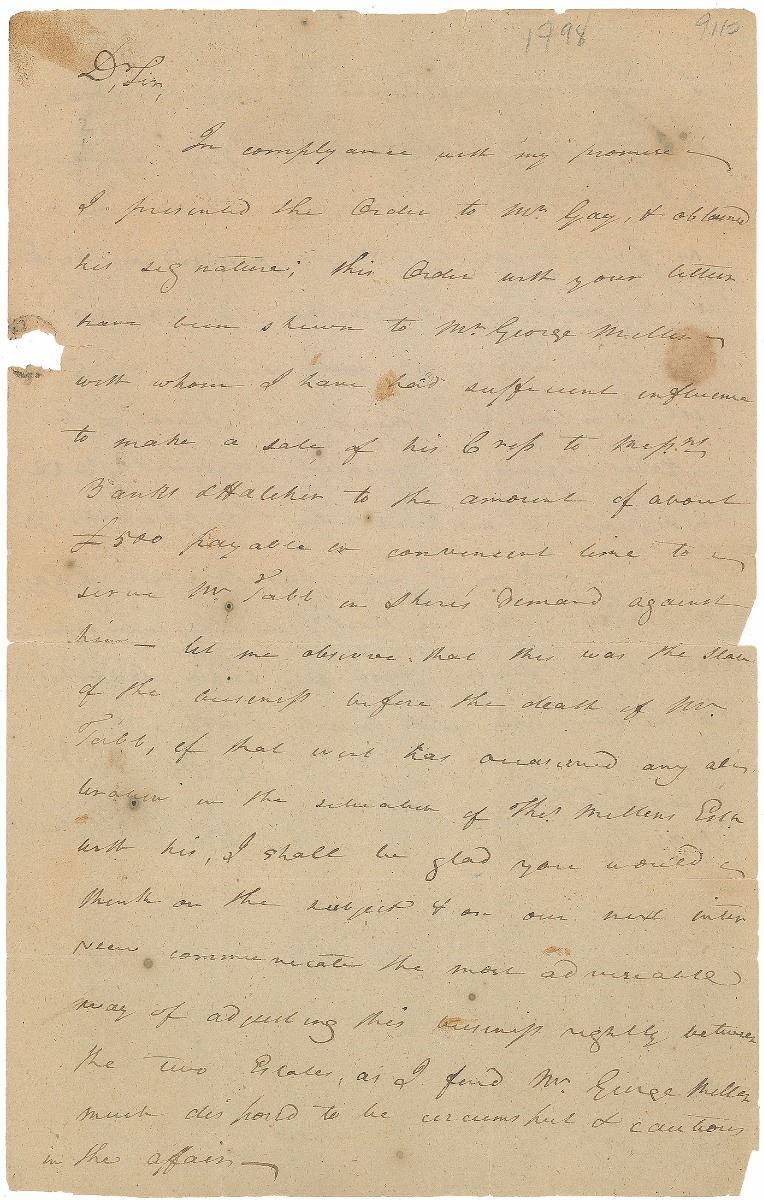 1798 9110
Dr Sir,
In complyance with my promise
I presented the Order to Mr Gay, & obtained
his signature; this Order with your letters
have been shewn to Mr George Miller
with whom I have had sufficient influence
to make a sale of his Crop to Messrs
Banks & Hatcher to the amount of about
£500 payable in convenient time to
serve Mr Tabb in Shore's Demand against
him — let me observe that this was the State
of the business before the death of Mr
Tabb, if that event has occasioned any alte
ration in the situation of Thos Millers Este
with his, I shall be glad you would
think on the subject & on our next inter
view communicate the most adviseable
way of adjusting this business rightly between
the two Estates, as I find Mr George Miller
much disposed to be circumspect & cautious
in the affair —